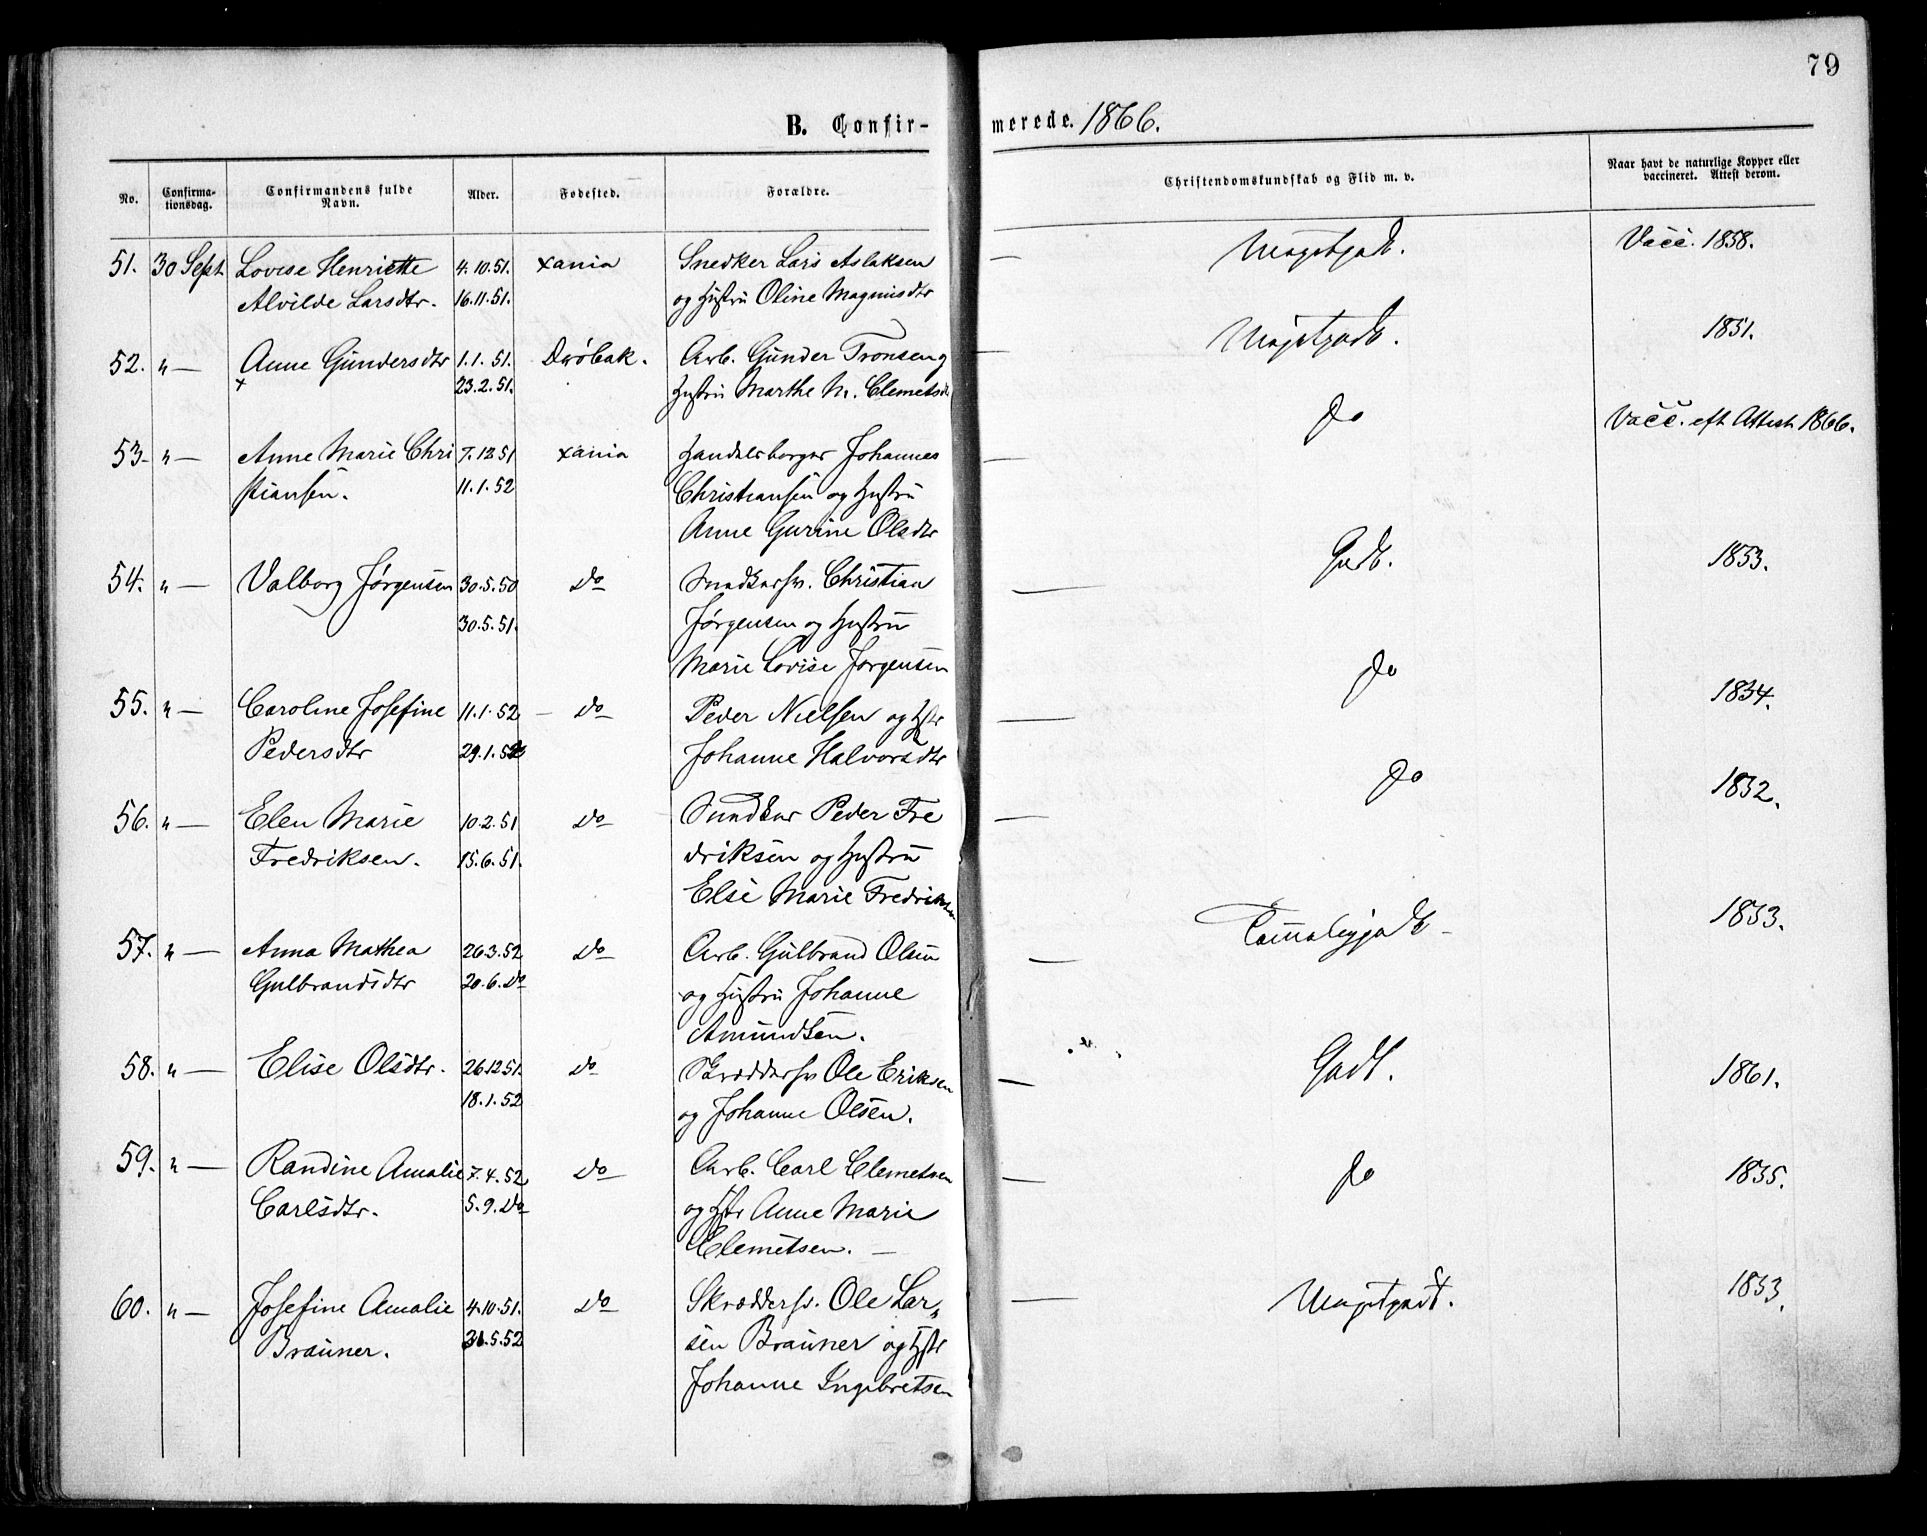 79
B. Confirmerede. 1866.
No.
Confirmationsdag.
Confirmandens fulde Navn.
Alder.
Fødested.
Forældre.
Christendomskundskab og Flid m. v.
Naar havt de naturlige Kopper eller vaccineret. Attest derom.
51. 30 Sept Lovise Henriette 4.10.51. Xania Snedker Lars Aslaksen — Megetgodt. Vacc. 1858.
Alvilde Larsdtr. 16.11.51. og Hustru Oline Magnusdtr
52. " — Anne Gundersdtr 1.1.51. Drøbak. Arb. Gunder Tronsen og — Megetgodt. 1851.
x 23.2.51. Hustru Marthe M. Clemetsdtr
53. " — Anne Marie Chri 7.12.51 Xania Handelsborger Johannes — Do Vacc. eft Attest 1866.
stiansen. 11.1.52 Christiansen og Hustru
Anne Gurine Olsdtr
54. " — Valborg Jørgensen 30.5.50 Do Snedkersv. Christian — Godt. 1853.
30.5.51. Jørgensen og Hustru
Marie Lovise Jørgensen
55. " — Caroline Josefine 11.1.52 — Do Peder Nielsen og Hstr — Do 1854.
Pedersdtr 29.1.52 Johanne Halvorsdtr
56. " — Elen Marie 10.2.51 Do Snedker Peder Fre — Do 1852.
Fredriksen. 15.6.51. driksen og Hustru
Else Marie Fredriksen
57. " — Anna Mathea 26.3.52 Do Arb. Gulbrand Olsen — Temmeliggodt 1853.
Gulbrandsdtr 20.6.Do og Hustru Johanne
Amundsen.
58. " — Elise Olsdtr. 26.12.51. Do Skræddersv Ole Eriksen — Godt. 1861.
18.1.52 og Johanne Olsen.
59. " — Randine Amalie 7.4.52 Do Arb. Carl Clemetsen — Do 1855.
Carlsdtr. 5.9.Do og Hstr Anne Marie
Clemetsen. —
60. " — Josefine Amalie 4.10.51. Do Skræddersv. Ole Lar- — Megetgodt. 1853.
Brauner. 31.5.52 sen Brauner og Hstr
Johanne Ingebretsen